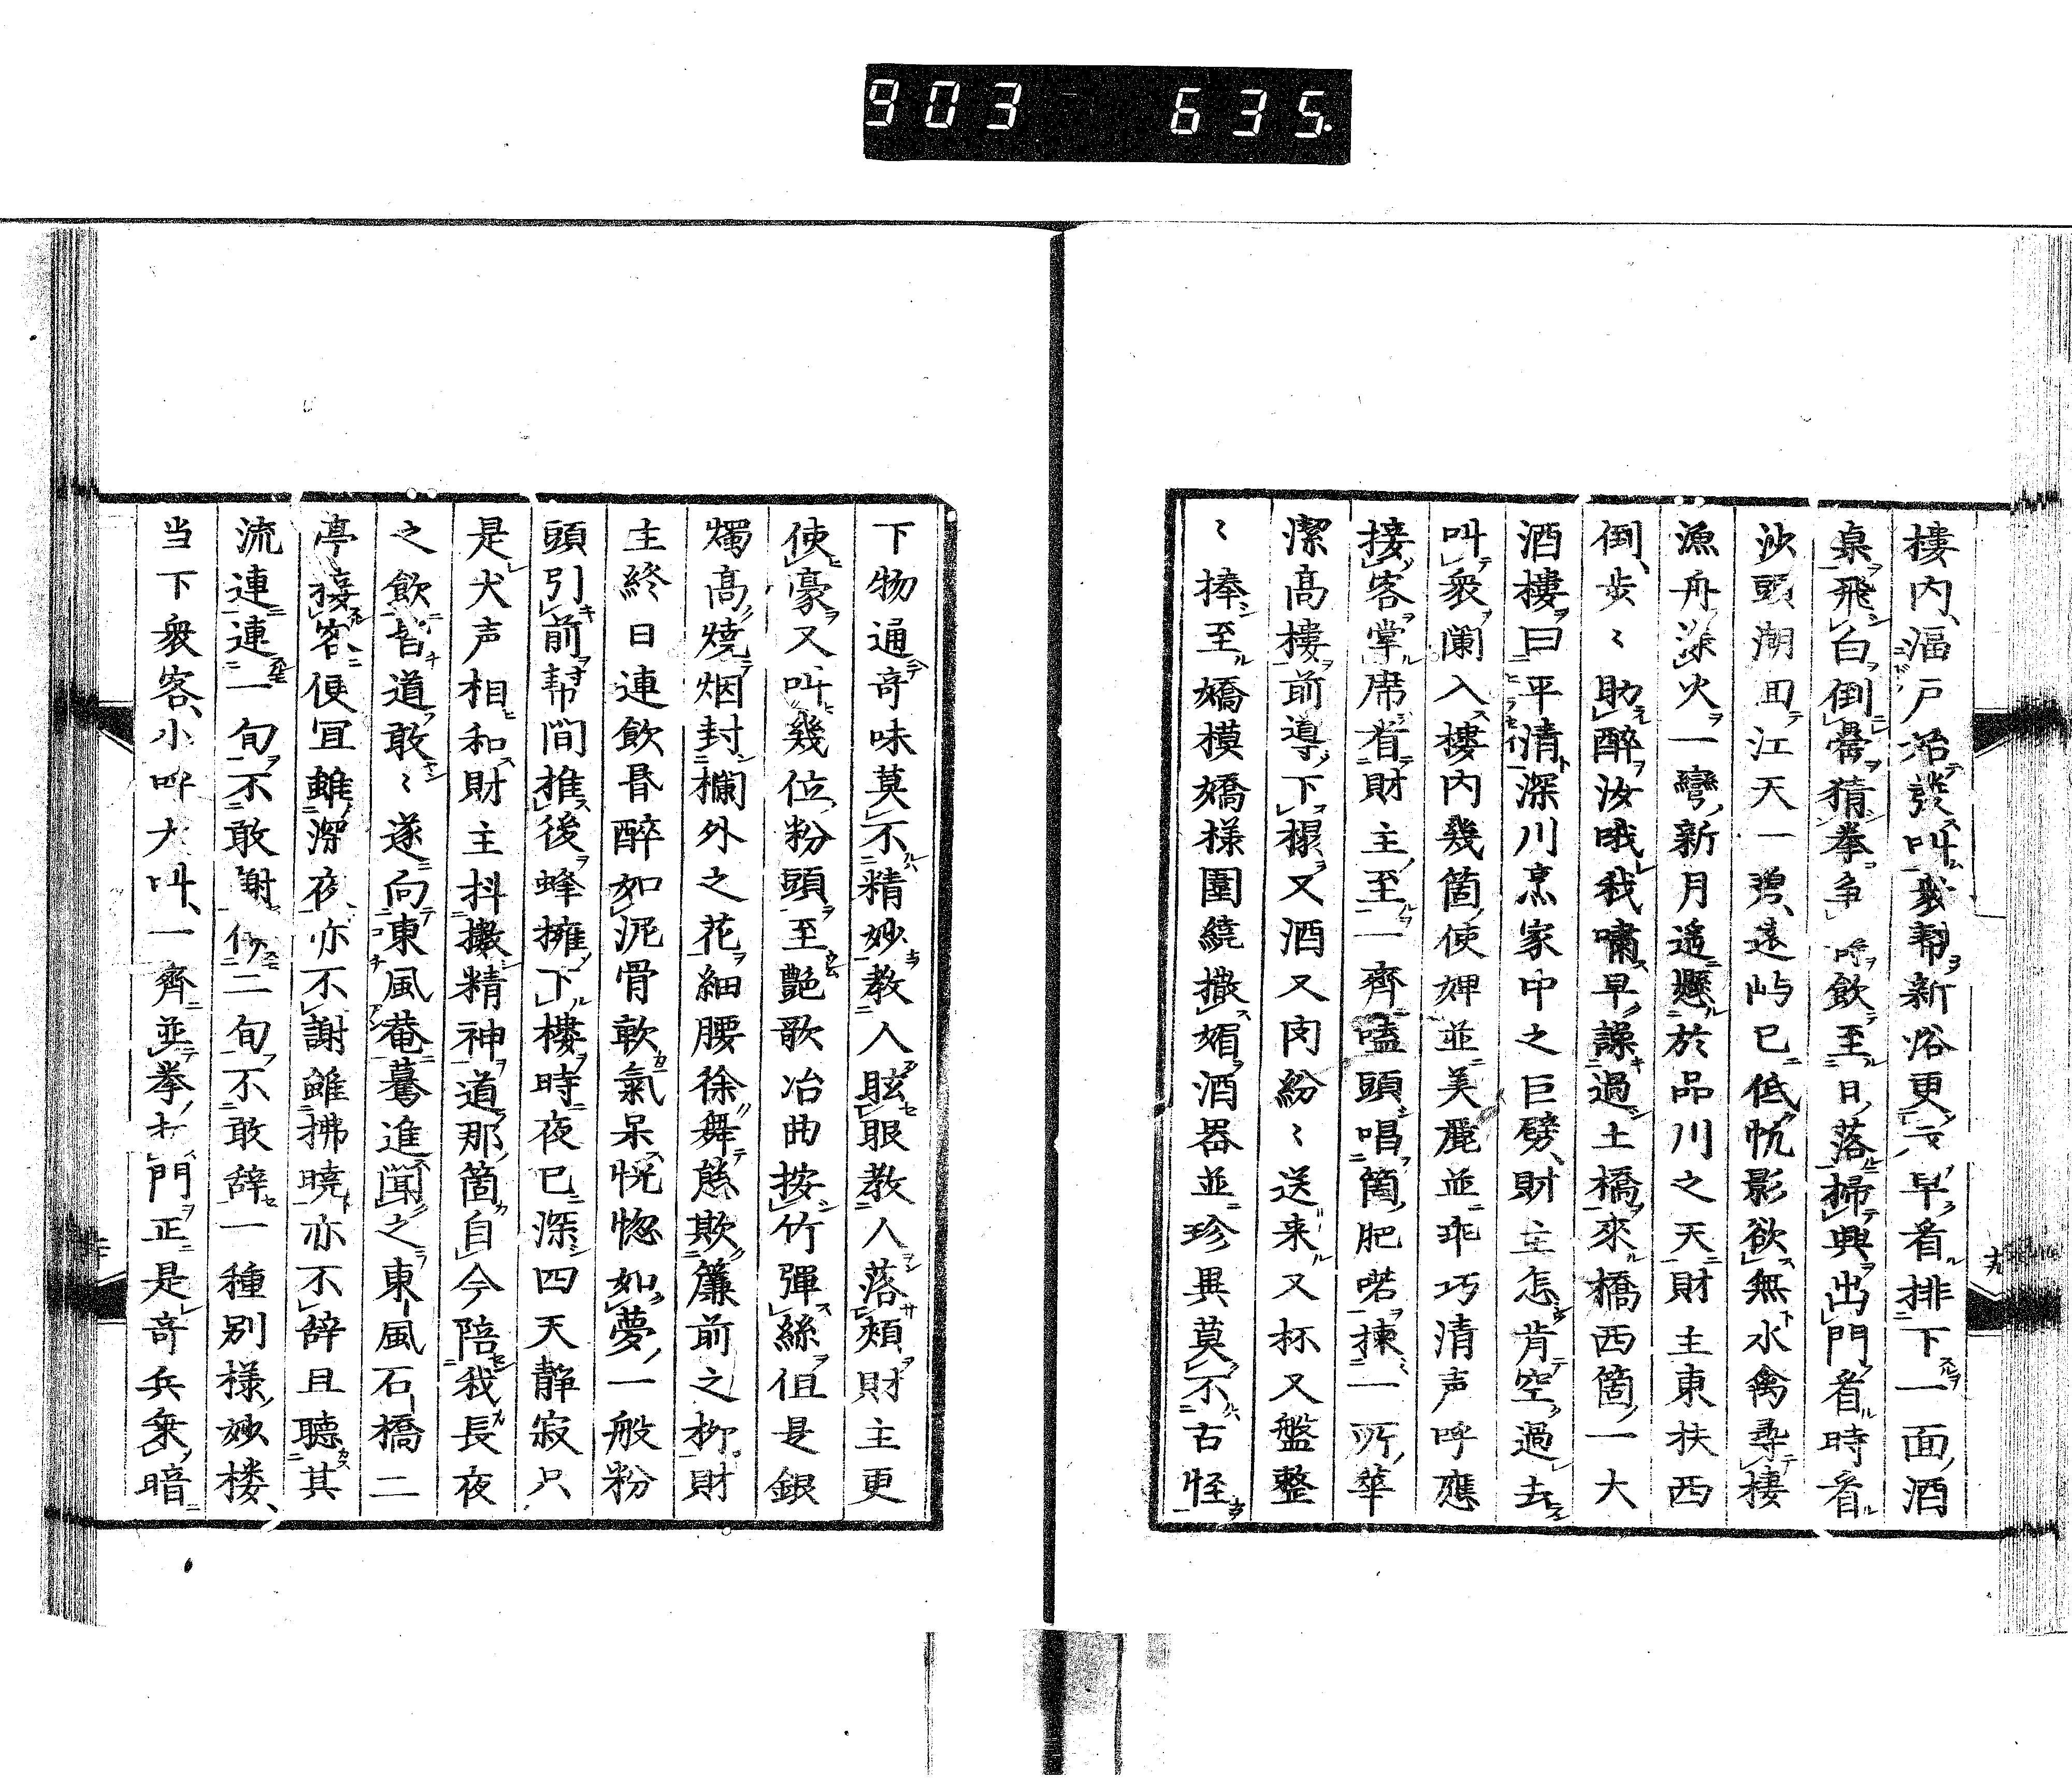 903 635
樓内、湢戸治發叫幾幇新浴更衣早看排下一面酒
桌飛白倒罍猜拳争呼飲至日落掃興出門看時看
沙頭潮田江天一碧、遠屿已低帆影欲無水禽尋棲
漁舟深火一彎新月遥懸於品川之天財主東扶西
倒、歩〻助醉汝哦我嘯早譟過土橋來橋西箇一大
酒樓曰平清深川烹家中之巨擘、財主怎肯空過去
叫衆闌入樓内幾箇使婢並美麗並乖巧清声呼應
接客掌席看財主至一齊嗑頭唱箇肥喏揀一所華
潔高樓前導下榻又酒又肉紛〻送来又杯又盤整
〻捧至嬌模嬌樣圍繞撒媚酒器並珍異莫不古怪
下物通奇味莫不精妙教人眩眼教人落頬財主更
使豪又叫幾位粉頭至艶歌冶曲按竹彈絲但是銀
燭高燒烟封欄外之花細腰徐舞態欺簾前之柳財
主終日連飲昏醉如泥骨軟氣呆恍惚如夢一般粉
頭引前幇間推後蜂擁下樓時夜已深四天静寂只
是犬声相和財主抖擻精神道那箇自今陪我長夜
之飲皆道敢〻遂向東風菴驀進聞之東風石橋二
亭接客便宜雖深夜亦不謝雖拂曉亦不辞且聽其
流連連一旬不敢謝二旬不敢辞一種別樣妙楼、
当下衆客、小呼大叫、一齊並拳打門正是奇兵乗暗